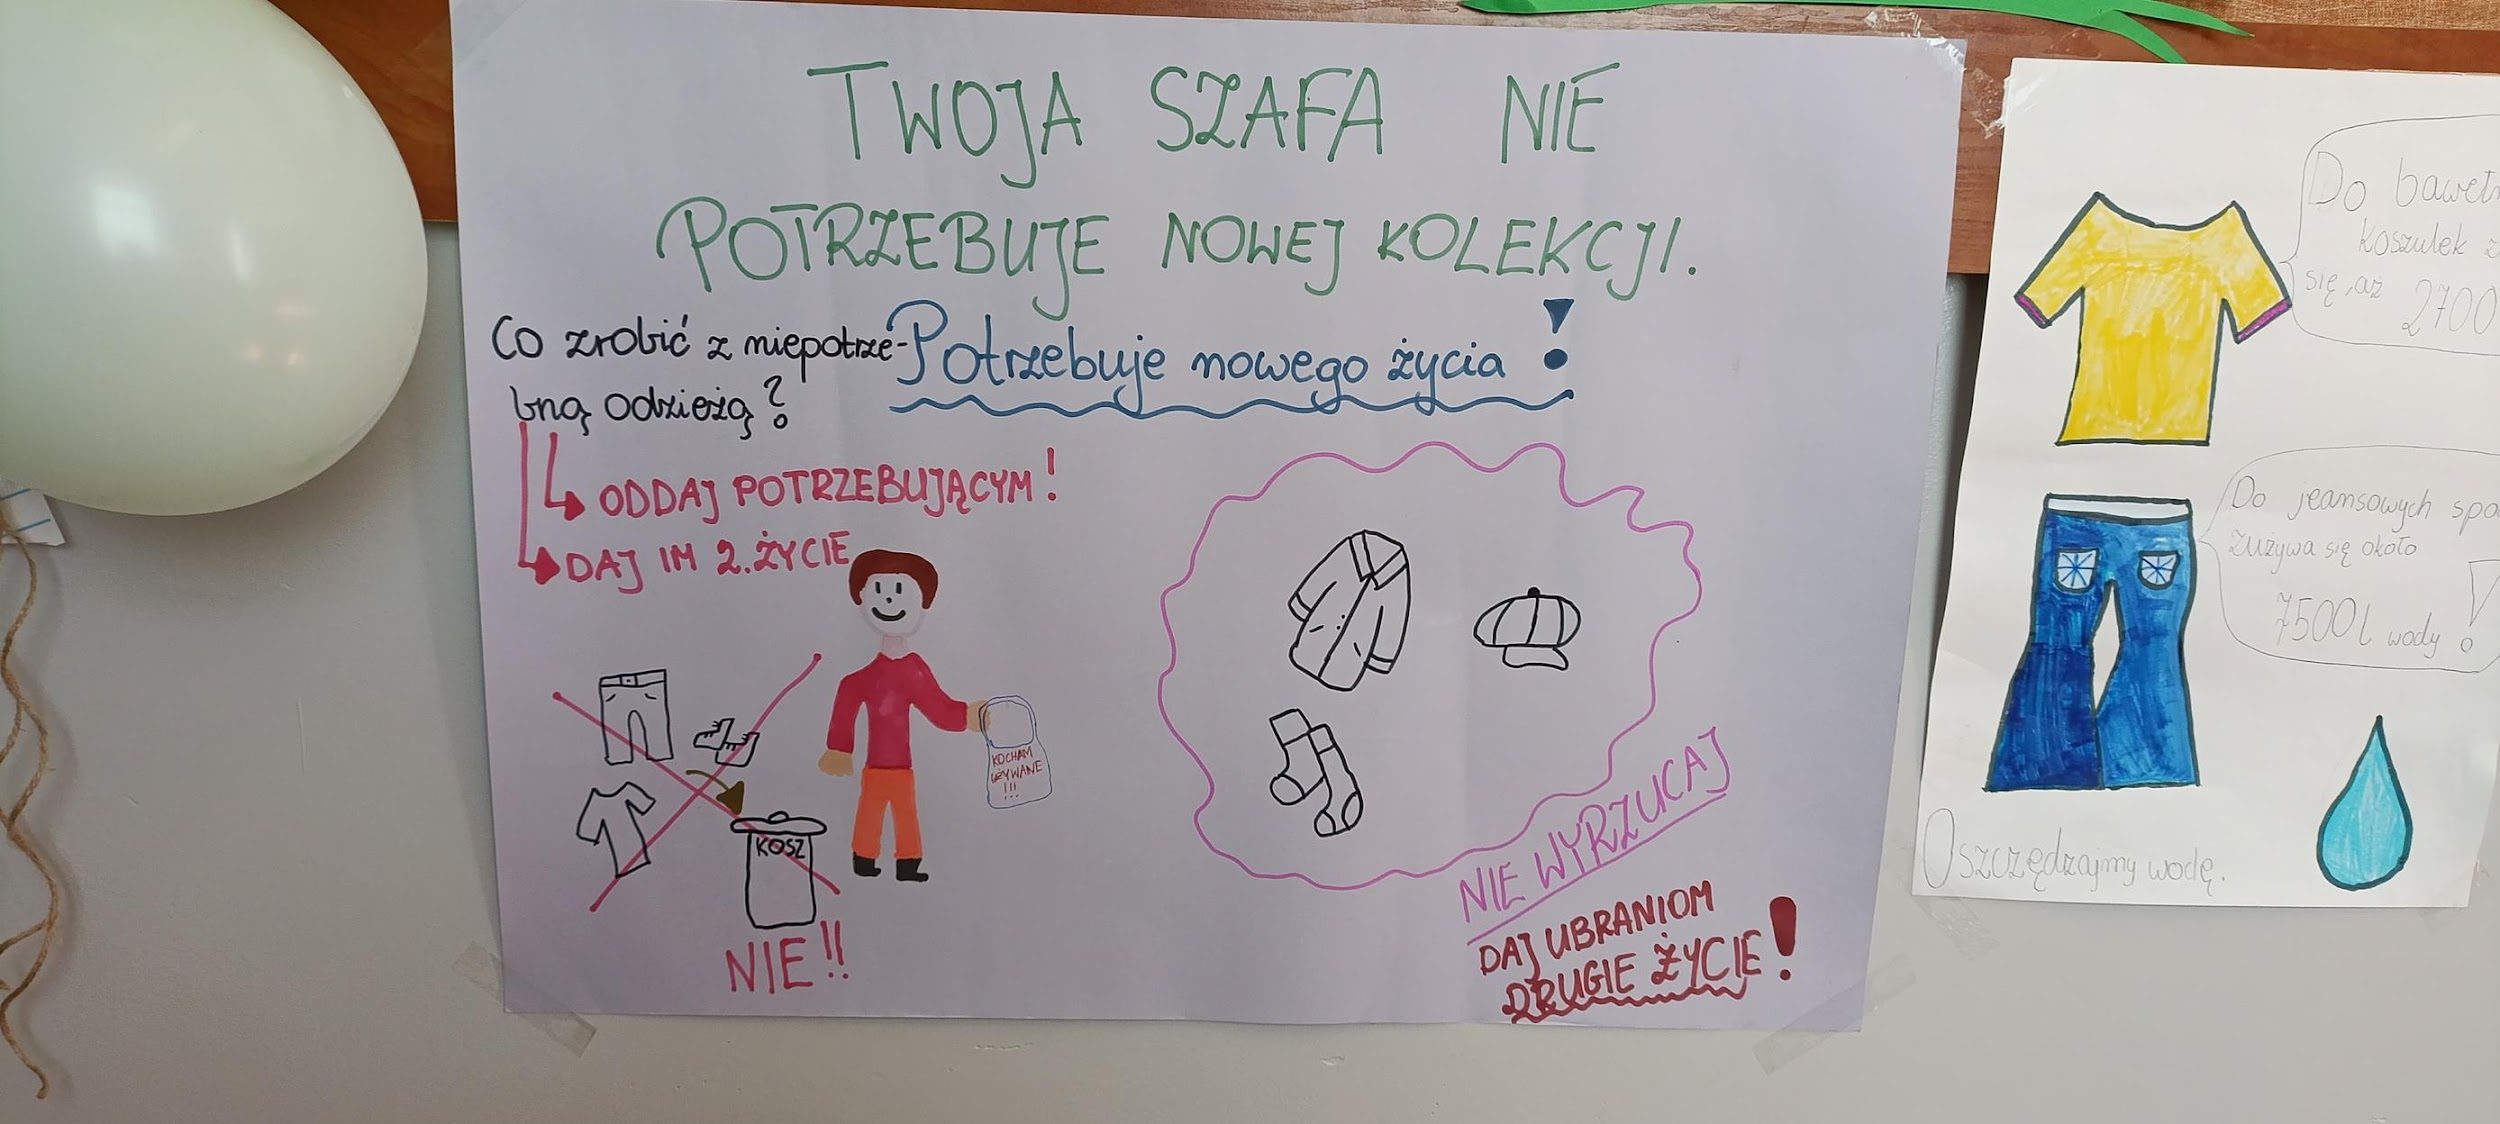 TWOJA SZAFA NIE
POTRZEBUJE NOWEJ KOLEKCJI.
Potrzebuje nowego życia!
Co zrobić z niepotrze-
bną odzieżą?
ODDAJ POTRZEBUJĄCYM!
DAJ IM 2. ŻYCIE
KOCHAM
UŻYWANE
!!!
KOSZ
NIE!!
NIE WYRZUCAJ
DAJ UBRANIOM
DRUGIE ŻYCIE!
Do
koszulek
się, aż 2700
Do jeansowych
zużywa się około
7500l wody!
Oszczędzajmy wodę.